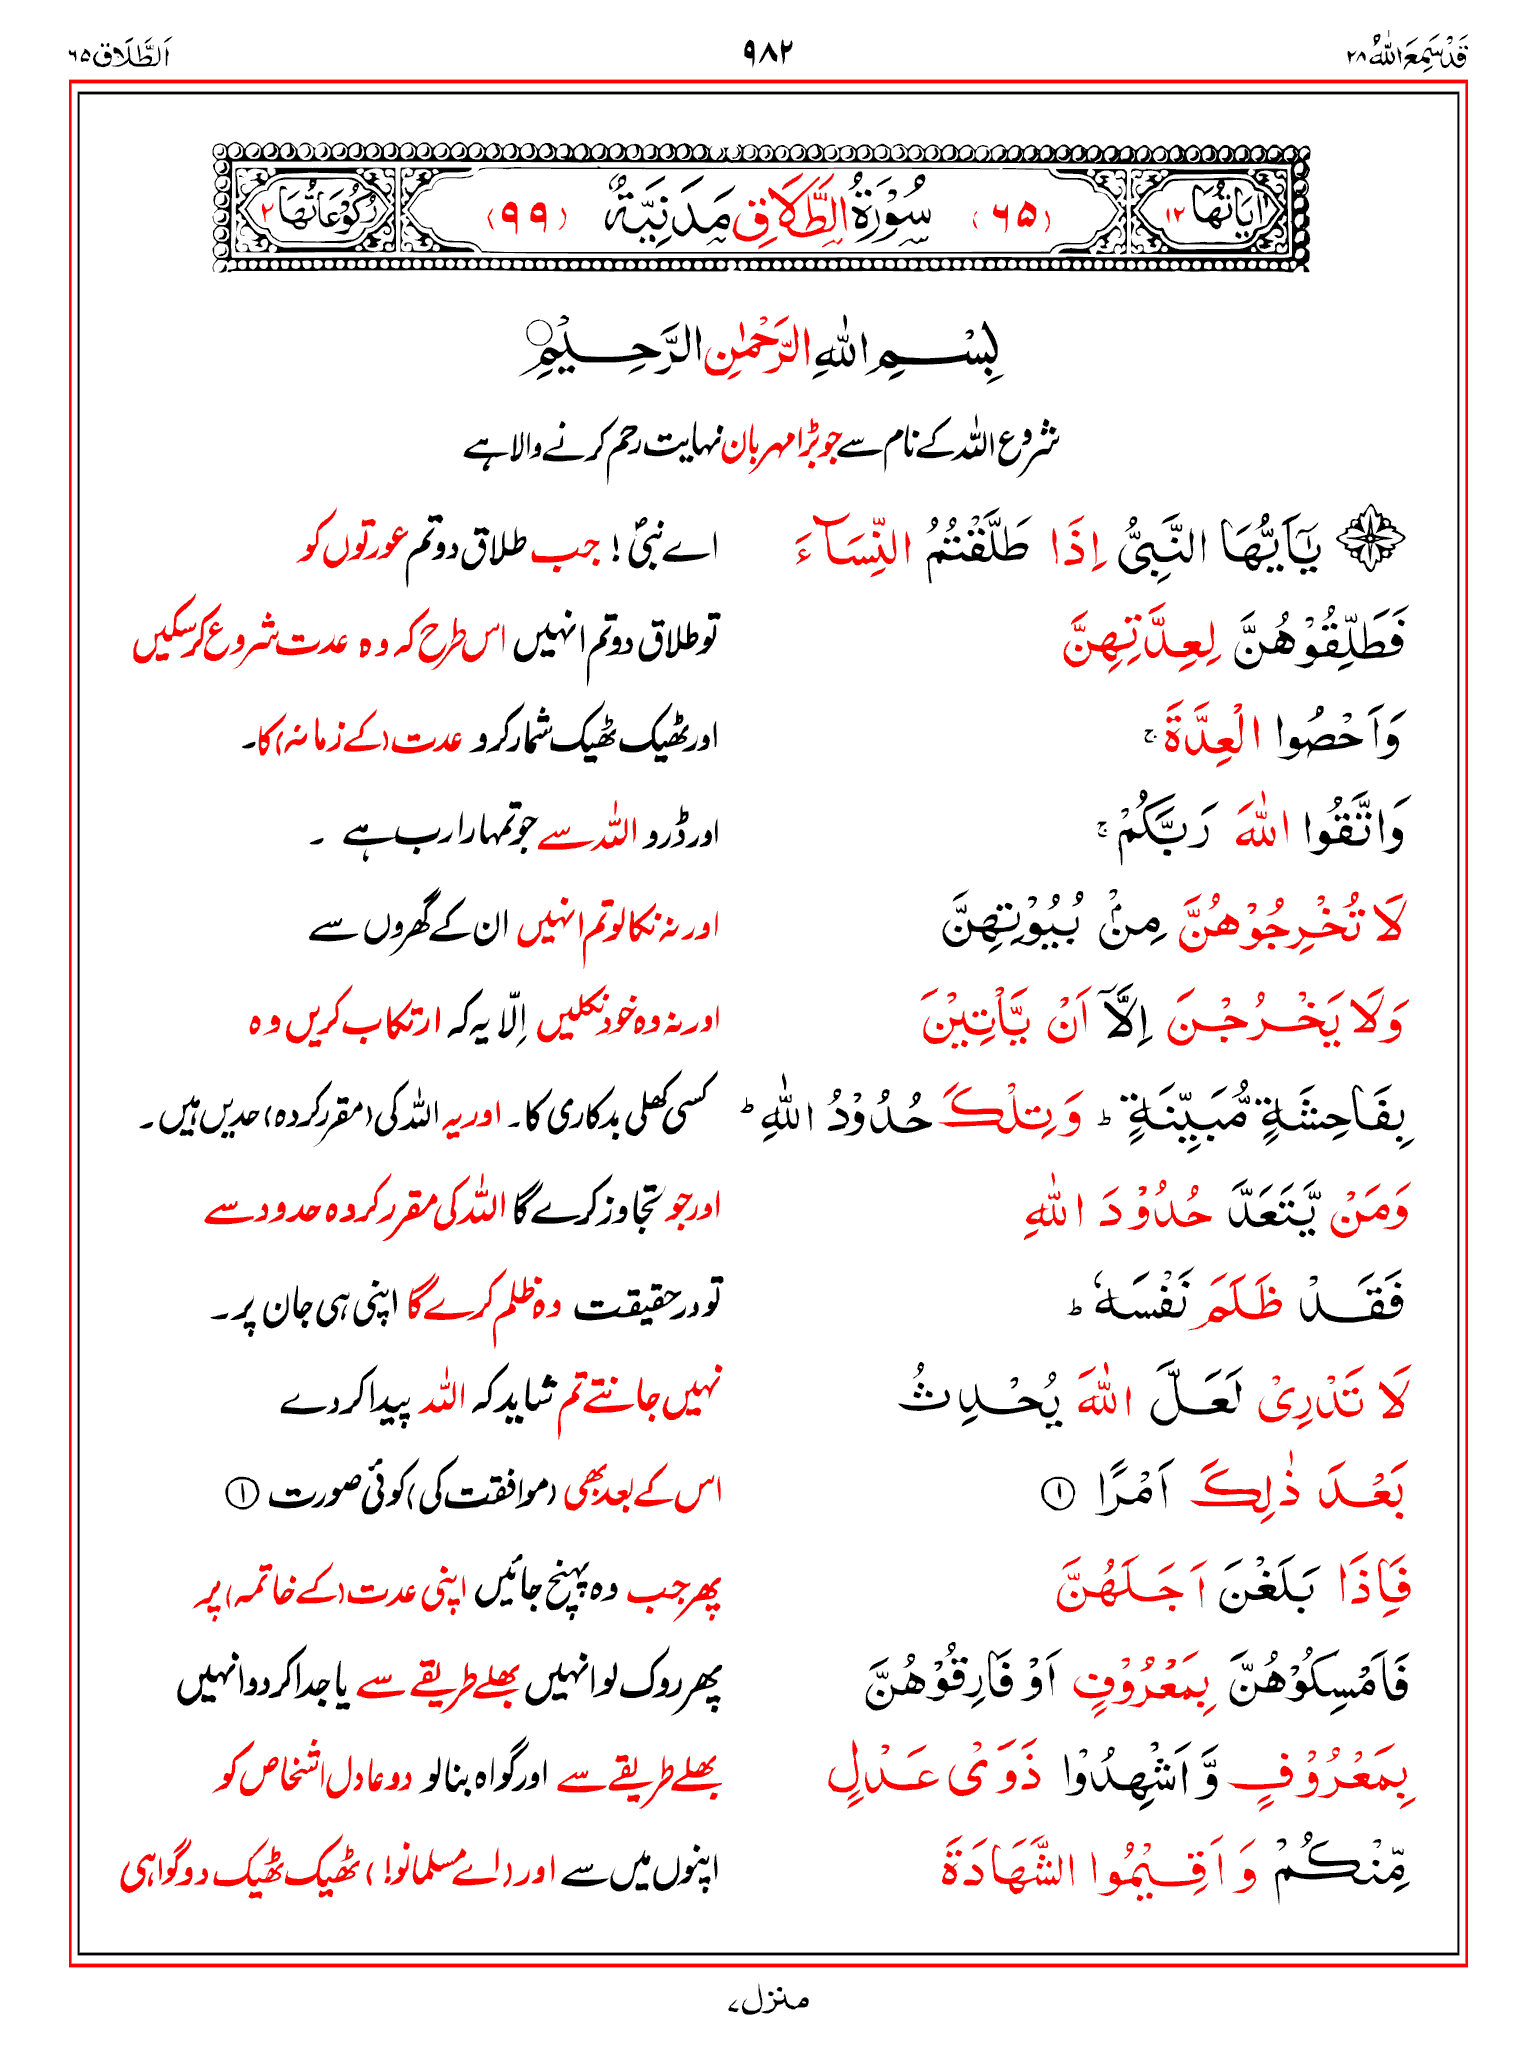 قَدْ سَمِعَ اللهُ ۲۸ ۹۸۲ اَلطَّلَاق ۶۵
اٰيَاتُهَا ۱۲ (۶۵) سُوْرَةُ الطَّلَاقِ مَدَنِيَّةٌ (۹۹) رُكُوْعَاتُهَا ۲
بِسْمِ اللهِ الرَّحْمٰنِ الرَّحِيْمِ
شروع اللہ کے نام سے جو بڑا مہربان نہایت رحم کرنے والا ہے
يٰۤاَيُّهَا النَّبِىُّ اِذَا طَلَّقْتُمُ النِّسَآءَ اے نبیؐ! جب طلاق دو تم عورتوں کو
فَطَلِّقُوْهُنَّ لِعِدَّتِهِنَّ تو طلاق دو تم انہیں اس طرح کہ وہ عدت شروع کرسکیں
وَاَحْصُوا الْعِدَّةَ ۚ اور ٹھیک ٹھیک شمار کرو عدت (کے زمانہ) کا۔
وَاتَّقُوا اللهَ رَبَّكُمْ ۚ اور ڈرو اللہ سے جو تمہارا رب ہے ۔
لَا تُخْرِجُوْهُنَّ مِنْۢ بُيُوْتِهِنَّ اور نہ نکالو تم انہیں ان کے گھروں سے
وَلَا يَخْرُجْنَ اِلَّاۤ اَنْ يَّاْتِيْنَ اور نہ وہ خود نکلیں اِلّا یہ کہ ارتکاب کریں وہ
بِفَاحِشَةٍ مُّبَيِّنَةٍ ؕ وَتِلْكَ حُدُوْدُ اللهِ ؕ کسی کھلی بدکاری کا۔ اور یہ اللہ کی (مقرر کردہ) حدیں ہیں۔
وَمَنْ يَّتَعَدَّ حُدُوْدَ اللهِ اور جو تجاوز کرے گا اللہ کی مقرر کردہ حدود سے
فَقَدْ ظَلَمَ نَفْسَهٗ ؕ تو درحقیقت وہ ظلم کرے گا اپنی ہی جان پر۔
لَا تَدْرِىْ لَعَلَّ اللهَ يُحْدِثُ نہیں جانتے تم شاید کہ اللہ پیدا کردے
بَعْدَ ذٰلِكَ اَمْرًا ① اس کے بعد بھی (موافقت کی) کوئی صورت ①
فَاِذَا بَلَغْنَ اَجَلَهُنَّ پھر جب وہ پہنچ جائیں اپنی عدت (کے خاتمہ) پر
فَاَمْسِكُوْهُنَّ بِمَعْرُوْفٍ اَوْ فَارِقُوْهُنَّ پھر روک لو انہیں بھلے طریقے سے یا جدا کردو انہیں
بِمَعْرُوْفٍ وَّاَشْهِدُوْا ذَوَىْ عَدْلٍ بھلے طریقے سے اور گواہ بنا لو دو عادل اشخاص کو
مِّنْكُمْ وَاَقِيْمُوا الشَّهَادَةَ اپنوں میں سے اور (اے مسلمانو!) ٹھیک ٹھیک دو گواہی
منزل ۷